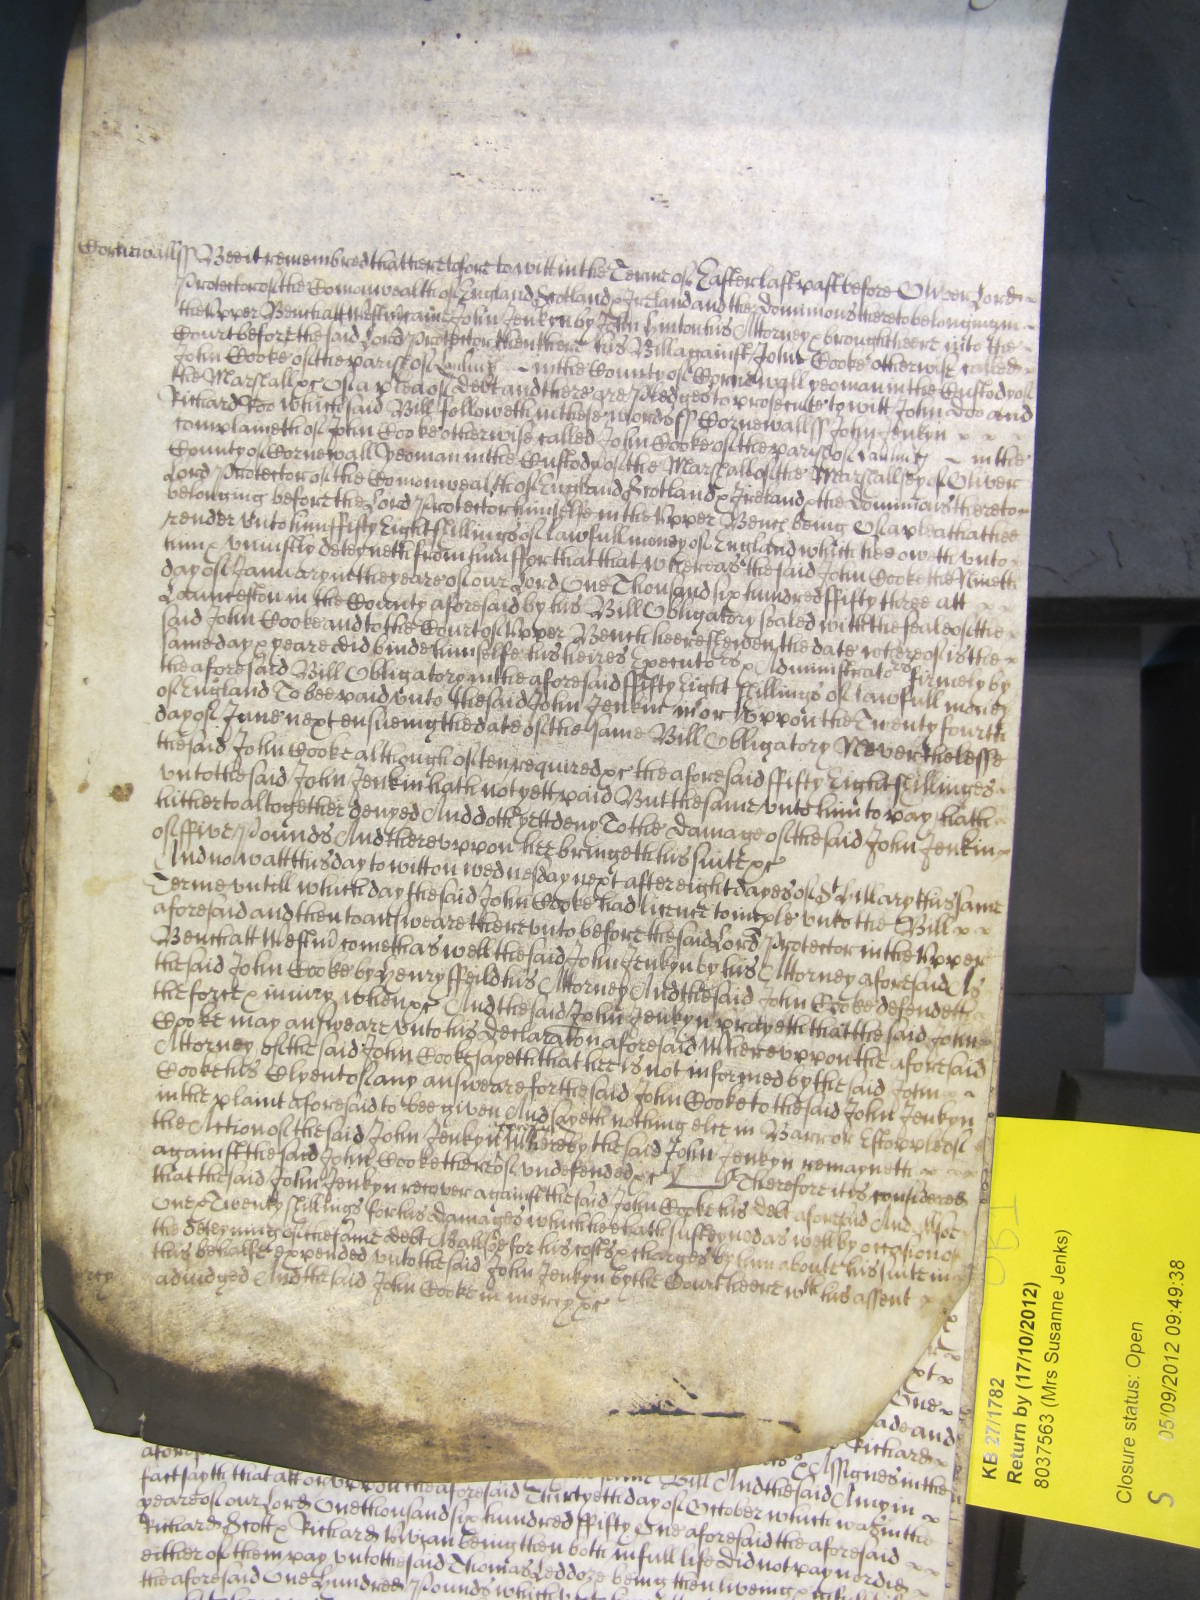 Cornewall ss Bee it remembred that heretofore to witt in the Terme of Easter last past before Oliver Lord
Protector of the Comonwealth of England Scotland & Ireland and the dominions thereto belonging in
the Upper Bench att Westm came John Jenkyn by John Hunton his Attorney & brought heere into the
Court before the said Lord Protector then there his Bill against John Cooke otherwise called
John Cooke of the parish of in the County of Cornewall yeoman in the Custody of
the Marshall &c Of a plea of debt and there are pledges to prosecute to witt John doo and
Richard Roo which said Bill followeth in these words ss Cornewall ss John Jenkyn
complaineth of John Cooke otherwise called John Cooke of the parish of in the
County of Cornewall yeoman in the Custody of the Marshall of the Marshallsey of Oliver
Lord Protector of the Comonwealth of England Scotland & Ireland & the dominions thereto
belonging before the Lord Protector himselfe in the Upper Bench being Of a plea that hee
render unto him ffifty Eight shillings of lawfull money of England which hee oweth unto
him & uniustly deteyneth from him ffor that that whereas the said John Cooke the Nineth
day of January in the yeare of our Lord One Thousand six hundred ffifty three att
Launceston in the County aforesaid by his Bill Obligatory sealed with the seale of the
said John Cooke and to the Court of Upper Bench heere shewen the date whereof is the
same day & yeare did binde himselfe his heires Executors & Administrators firmely by
the aforesaid Bill Obligatory in the aforesaid ffifty Eight shillings of lawfull money
of England To bee paid unto the said John Jenkin in or uppon the Twenty fourth
day of June next ensueing the date of the same Bill Obligatory Neverthelesse
the said John Cooke although often required &c the aforesaid ffifty Eight shillinges
unto the said John Jenkin hath not yett paid But the same unto him to pay hath
hitherto altogether denyed And doth yett deny To the damage of the said John Jenkin
of ffive Pounds And thereuppon hee bringeth his suite &c
And now att this day to witt on wednesday next after eight dayes of St Hillary this same
Terme untill which day the said John Cooke had licence to imple unto the Bill
aforesaid and then to answeare thereunto before the said Lord Protector in the Upper
Bench att Westm cometh as well the said John Jenkyn by his Attorney aforesaid As
the said John Cooke by Henry ffeild his Attorney And the said John Cooke defendeth
the force & iniury when &c And the said John Jenkyn prayeth that the said John
Cooke may answeare unto his declaration aforesaid Whereuppon the aforesaid
Attorney of the said John Cooke sayeth that hee is not informed by the said John
Cooke his Clyent of any answeare for the said John Cooke to the said John Jenkyn
in the plaint aforesaid to bee given And sayeth nothing else in Barr or Estoppell of
the Action of the said John Jenkyn Whereby the said John Jenkyn remayneth
against the said John Cooke thereof undefended &c Therefore it is considered
that the said John Jenkyn recover against the said John Cooke his debt aforesaid And alsoe
One & Twenty shillings for his damages which hee hath susteyned as well by occasion of
the deteyning of the same debt As alsoe for his costs & charges by him about his suite in
this behalfe expended unto the said John Jenkyn by the Court heere wth his assent
adiudged And the said John Cooke in mercy &c
One
ade and
Richard
& Assignes in the
afores
fact sayth that att or uppon the aforesaid Thirtyeth day of October which was in the
yeare of our Lord One thousand six hundred ffifty One aforesaid the aforesaid
Richard Scott & Richard being then both in full life did not pay nor did
either of them pay unto the said Thomas being then liveing &
the aforesaid One Hundred Pounds which
KB 27/1782
Return by (17/10/2012)
8037563 (Mrs Susanne Jenks)
Closure status: Open
05/09/2012 09:49:38
S